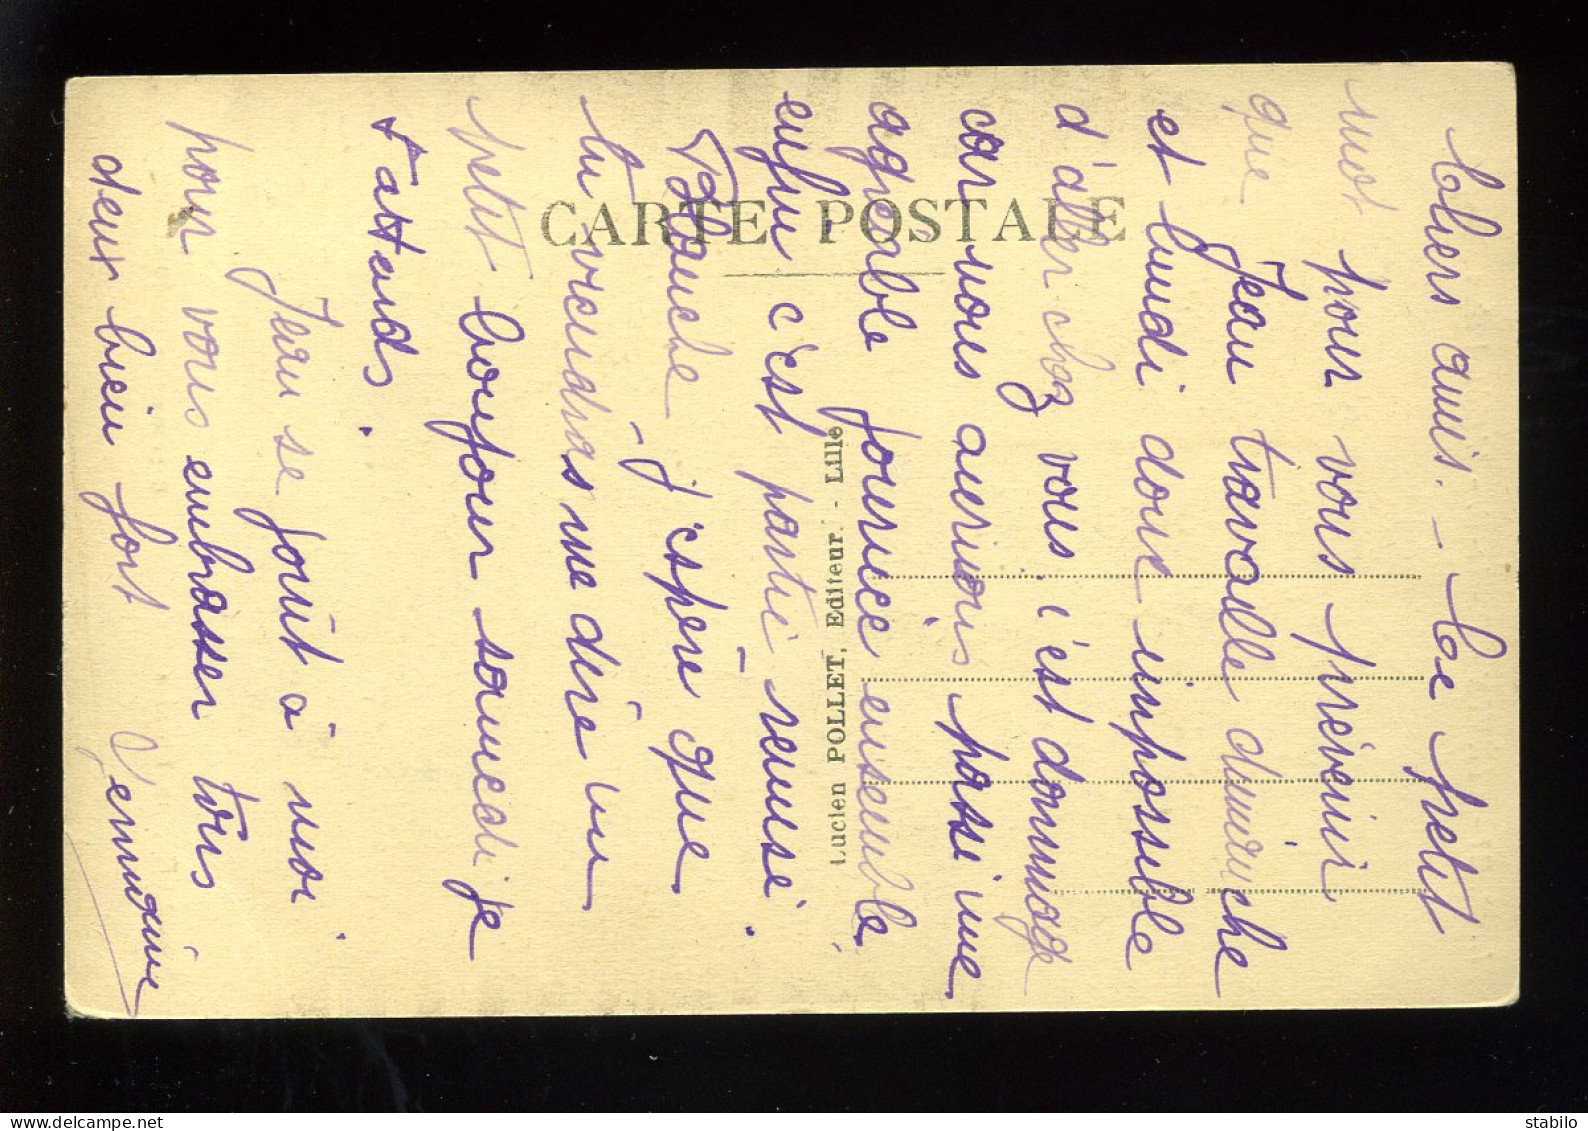 Chers amis. - Ce petit
mot pour vous prévenir
que Jean travaille dimanche
et lundi donc impossible
d'aller chez vous. c'est dommage
car nous aurions passé une
agréable journée ensemble
enfin c'est partie remise.
Blanche j'espère que
tu viendras me dire un
petit bonjour samedi je
t'attends.
Jean se joint à moi
pour vous embrasser tous
deux bien fort
Germaine
CARTE POSTALE
Lucien POLLET, Editeur. - Lille
stabilo
www.delcampe.net